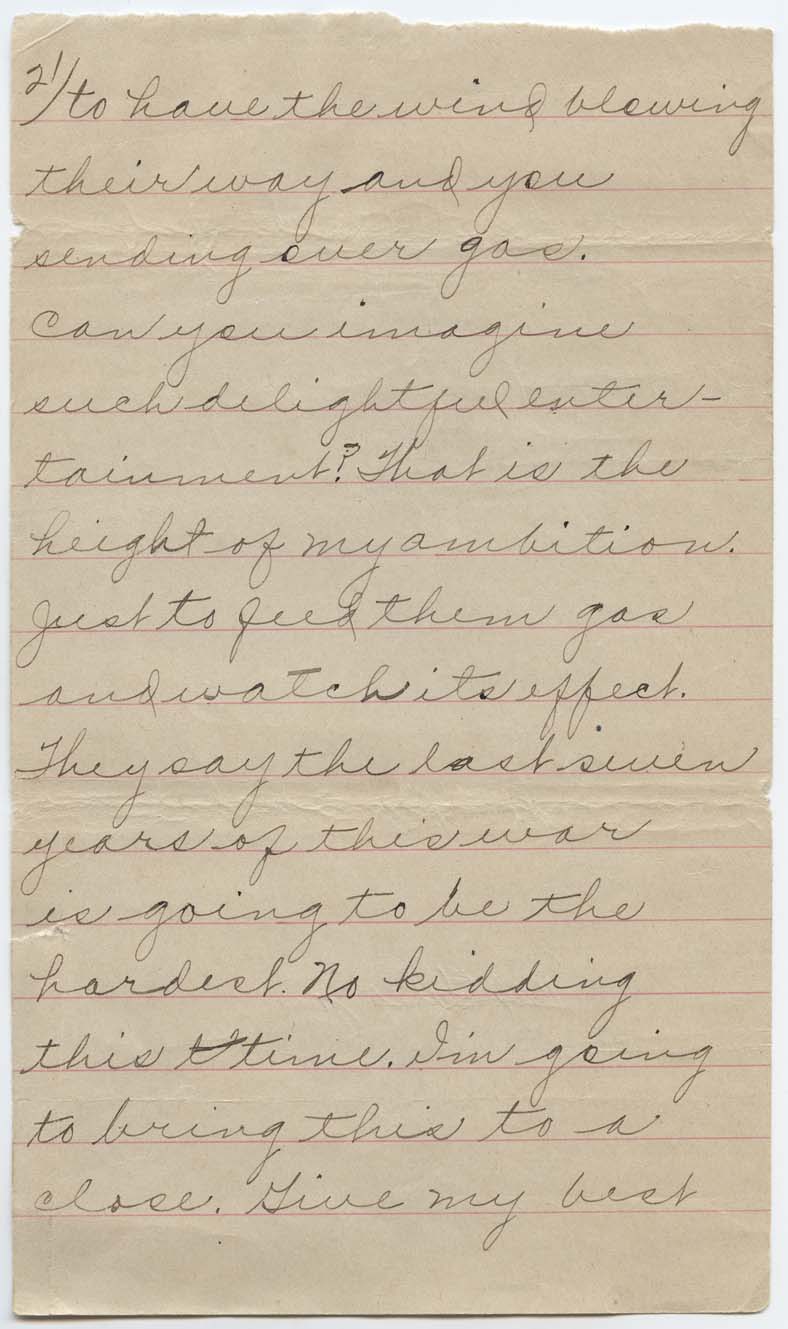 21/to have the wind blowing
their way and you
sending over gas.
Can you imagine
such delightful enter-
tainment? That is the
height of my ambition.
Just to feed them gas
and watch its effect.
They say the last seven
years of this war
is going to be the
hardest. No kidding
this time. I'm going
to bring this to a
close. Give my best